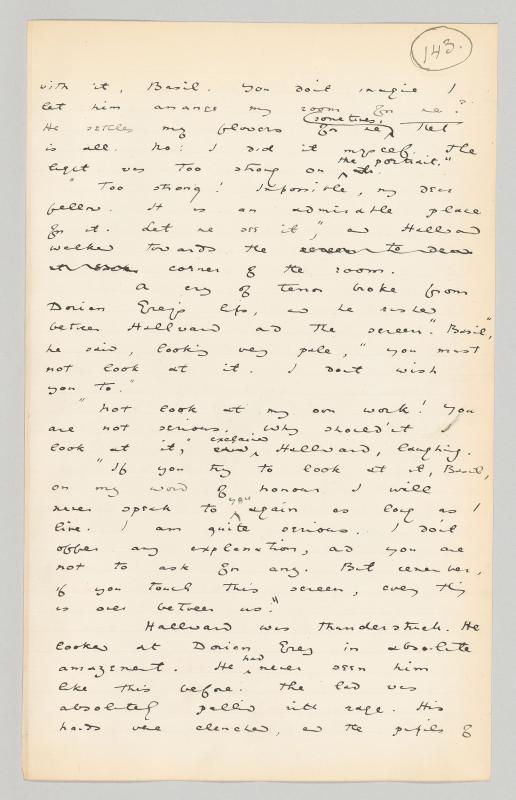 143.
with it, Basil. You don't imagine I
let him arrange my room for me?
He settles my flowers for me sometimes, that
is all. No: I did it myself. The
light was too strong on the portrait."
"Too strong! Impossible, my dear
fellow. It is an admirable place
for it. Let me see it", and Hallward
walked towards the
corner of the room.
A cry of terror broke from
Dorian Grey's lips, and he rushed
between Hallward and the screen. "Basil",
he said, looking very pale, "you must
not look at it. I don't wish
you to."
"Not look at my own work! You
are not serious. Why shouldn't I
look at it," exclaimed Hallward, laughing.
"If you try to look at it, Basil,
on my word of honour I will
never speak to you again as long as I
live. I am quite serious. I don't
offer any explanation, and you are
not to ask for any. But remember,
if you touch this screen, every thing
is over between us."
Hallward was thunderstruck. He
looked at Dorian Grey in absolute
amazement. He had never seen him
like this before. The lad was
absolutely pallid with rage. His
hands were clenched, and the pupils of